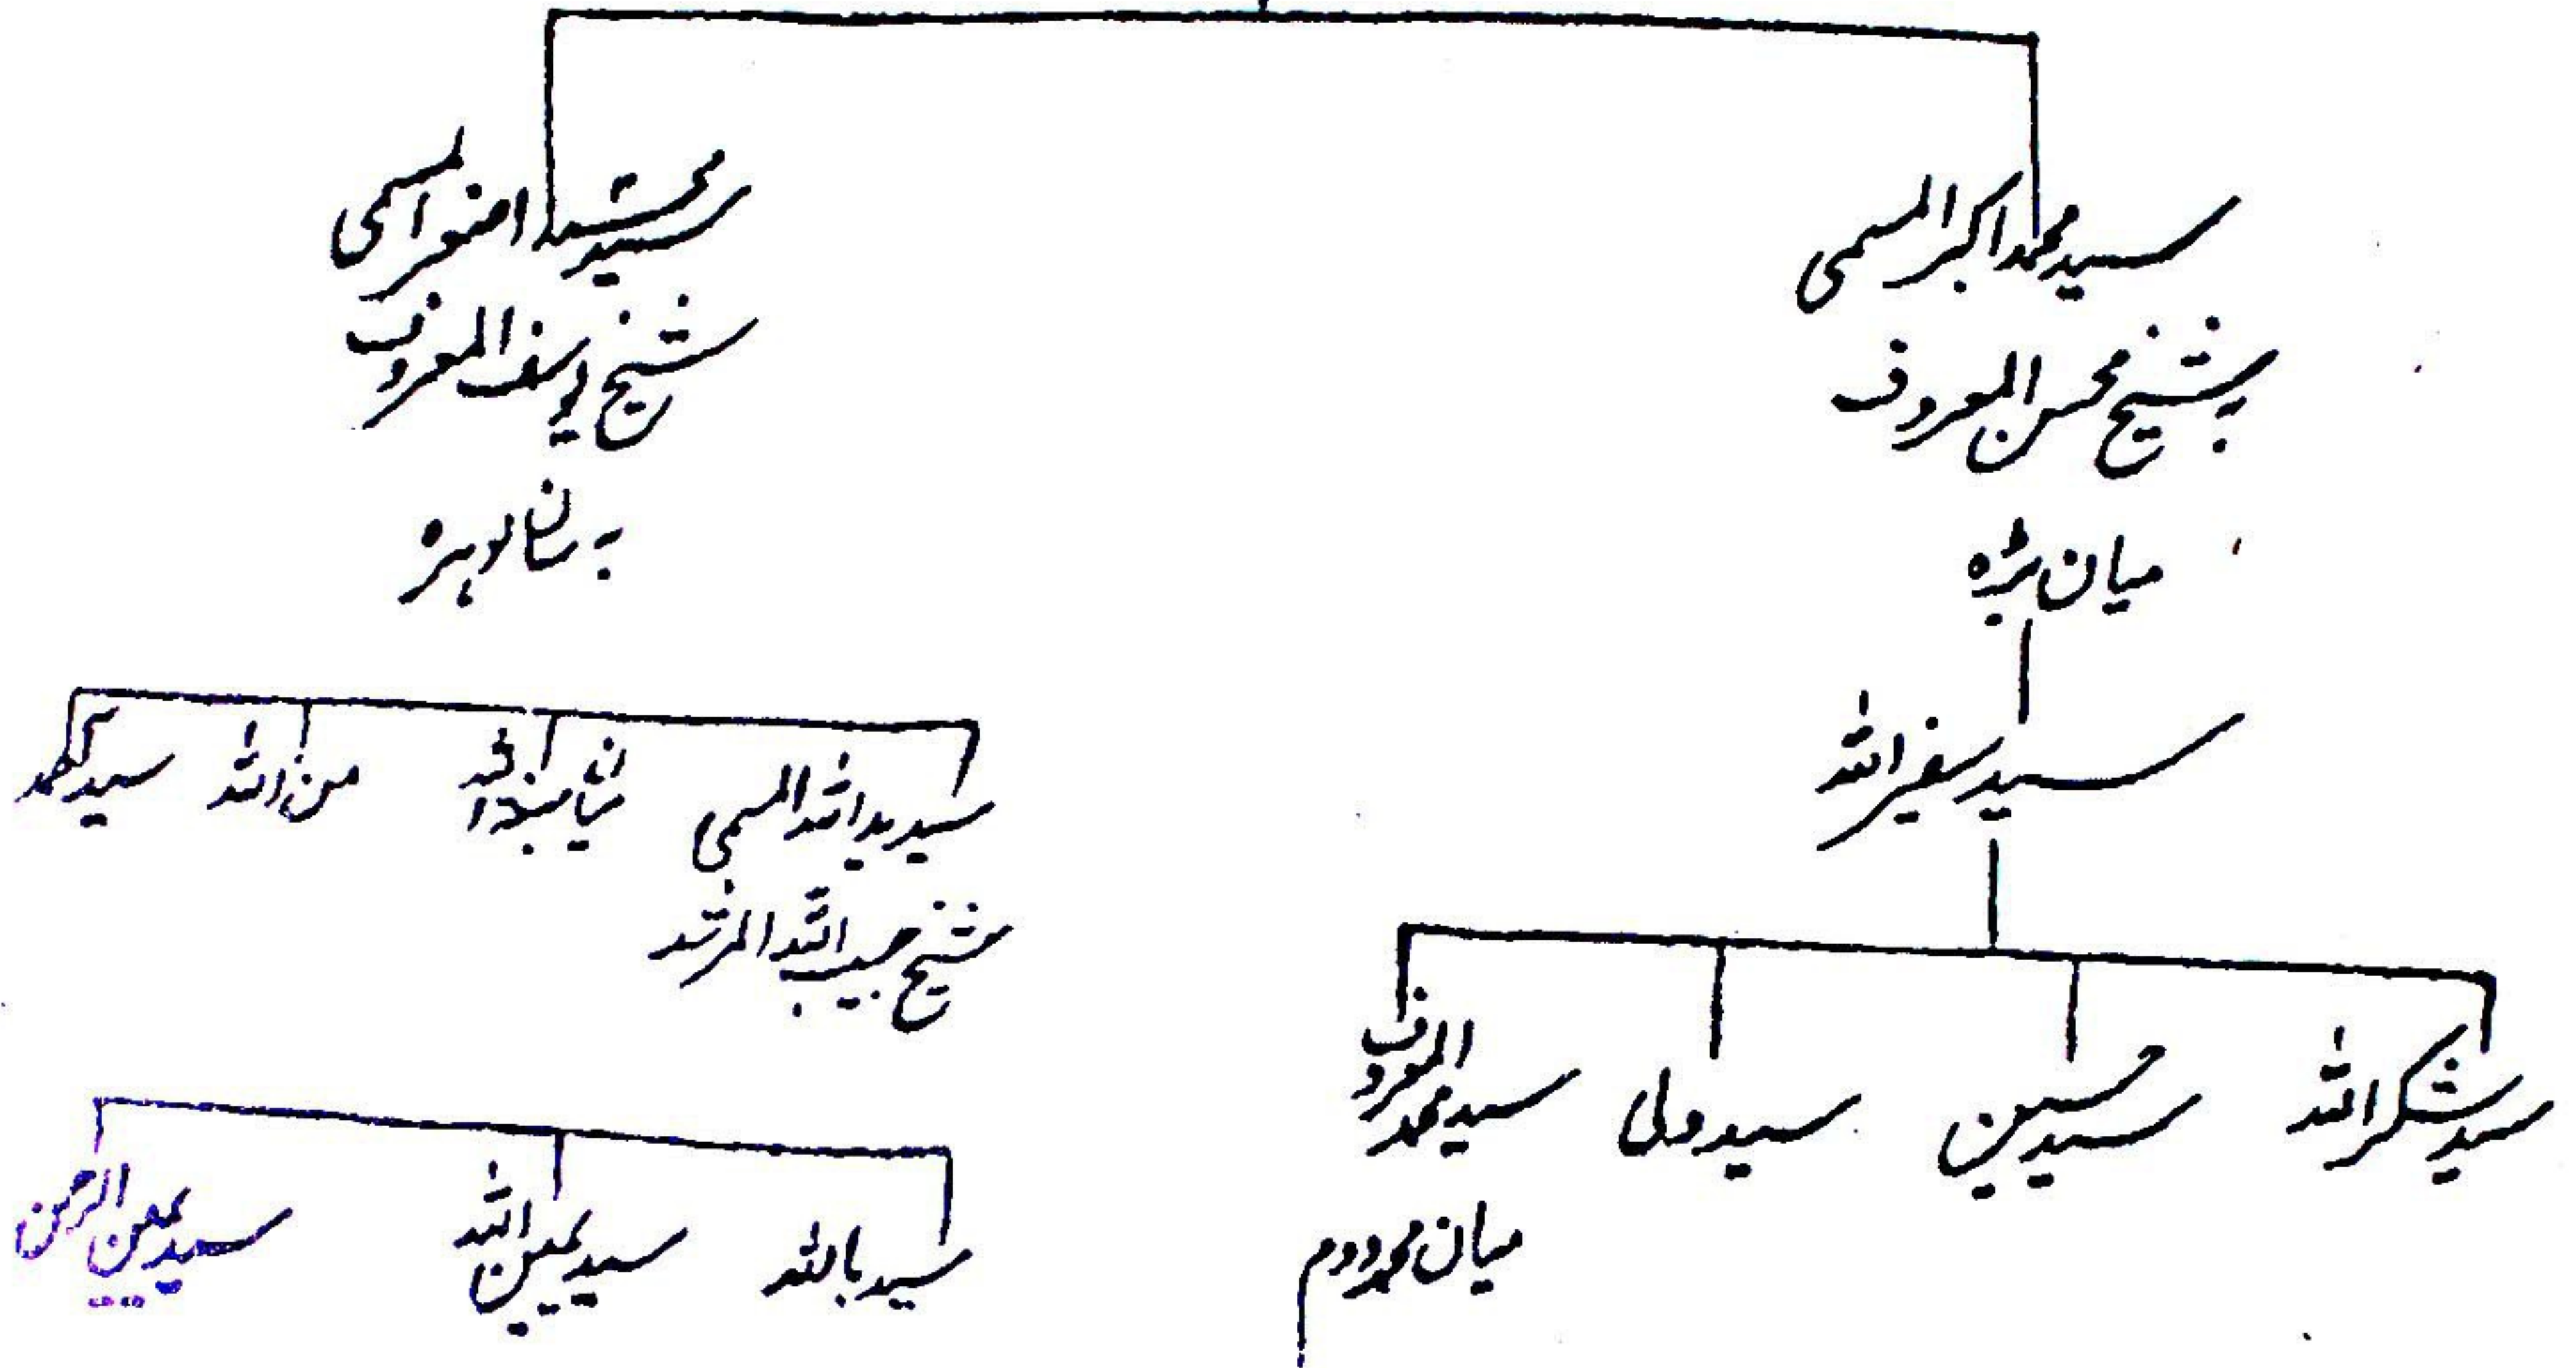 سید محمد اکبر المسمی
بشیخ محسن المعروف
میان بڑہ
سید سفیر اللہ
سید شکر اللہ
سید حسین
سید ولی
سید محمد المعروف
میان محمد دوم
سید محمد اصغر المسمی
شیخ یوسف المعروف
بہ
سید ید اللہ المسمی
شیخ حبیب اللہ المرشد
من اللہ
سید محمد
سید باللہ
سید یمین اللہ
سید یمین الرحمن